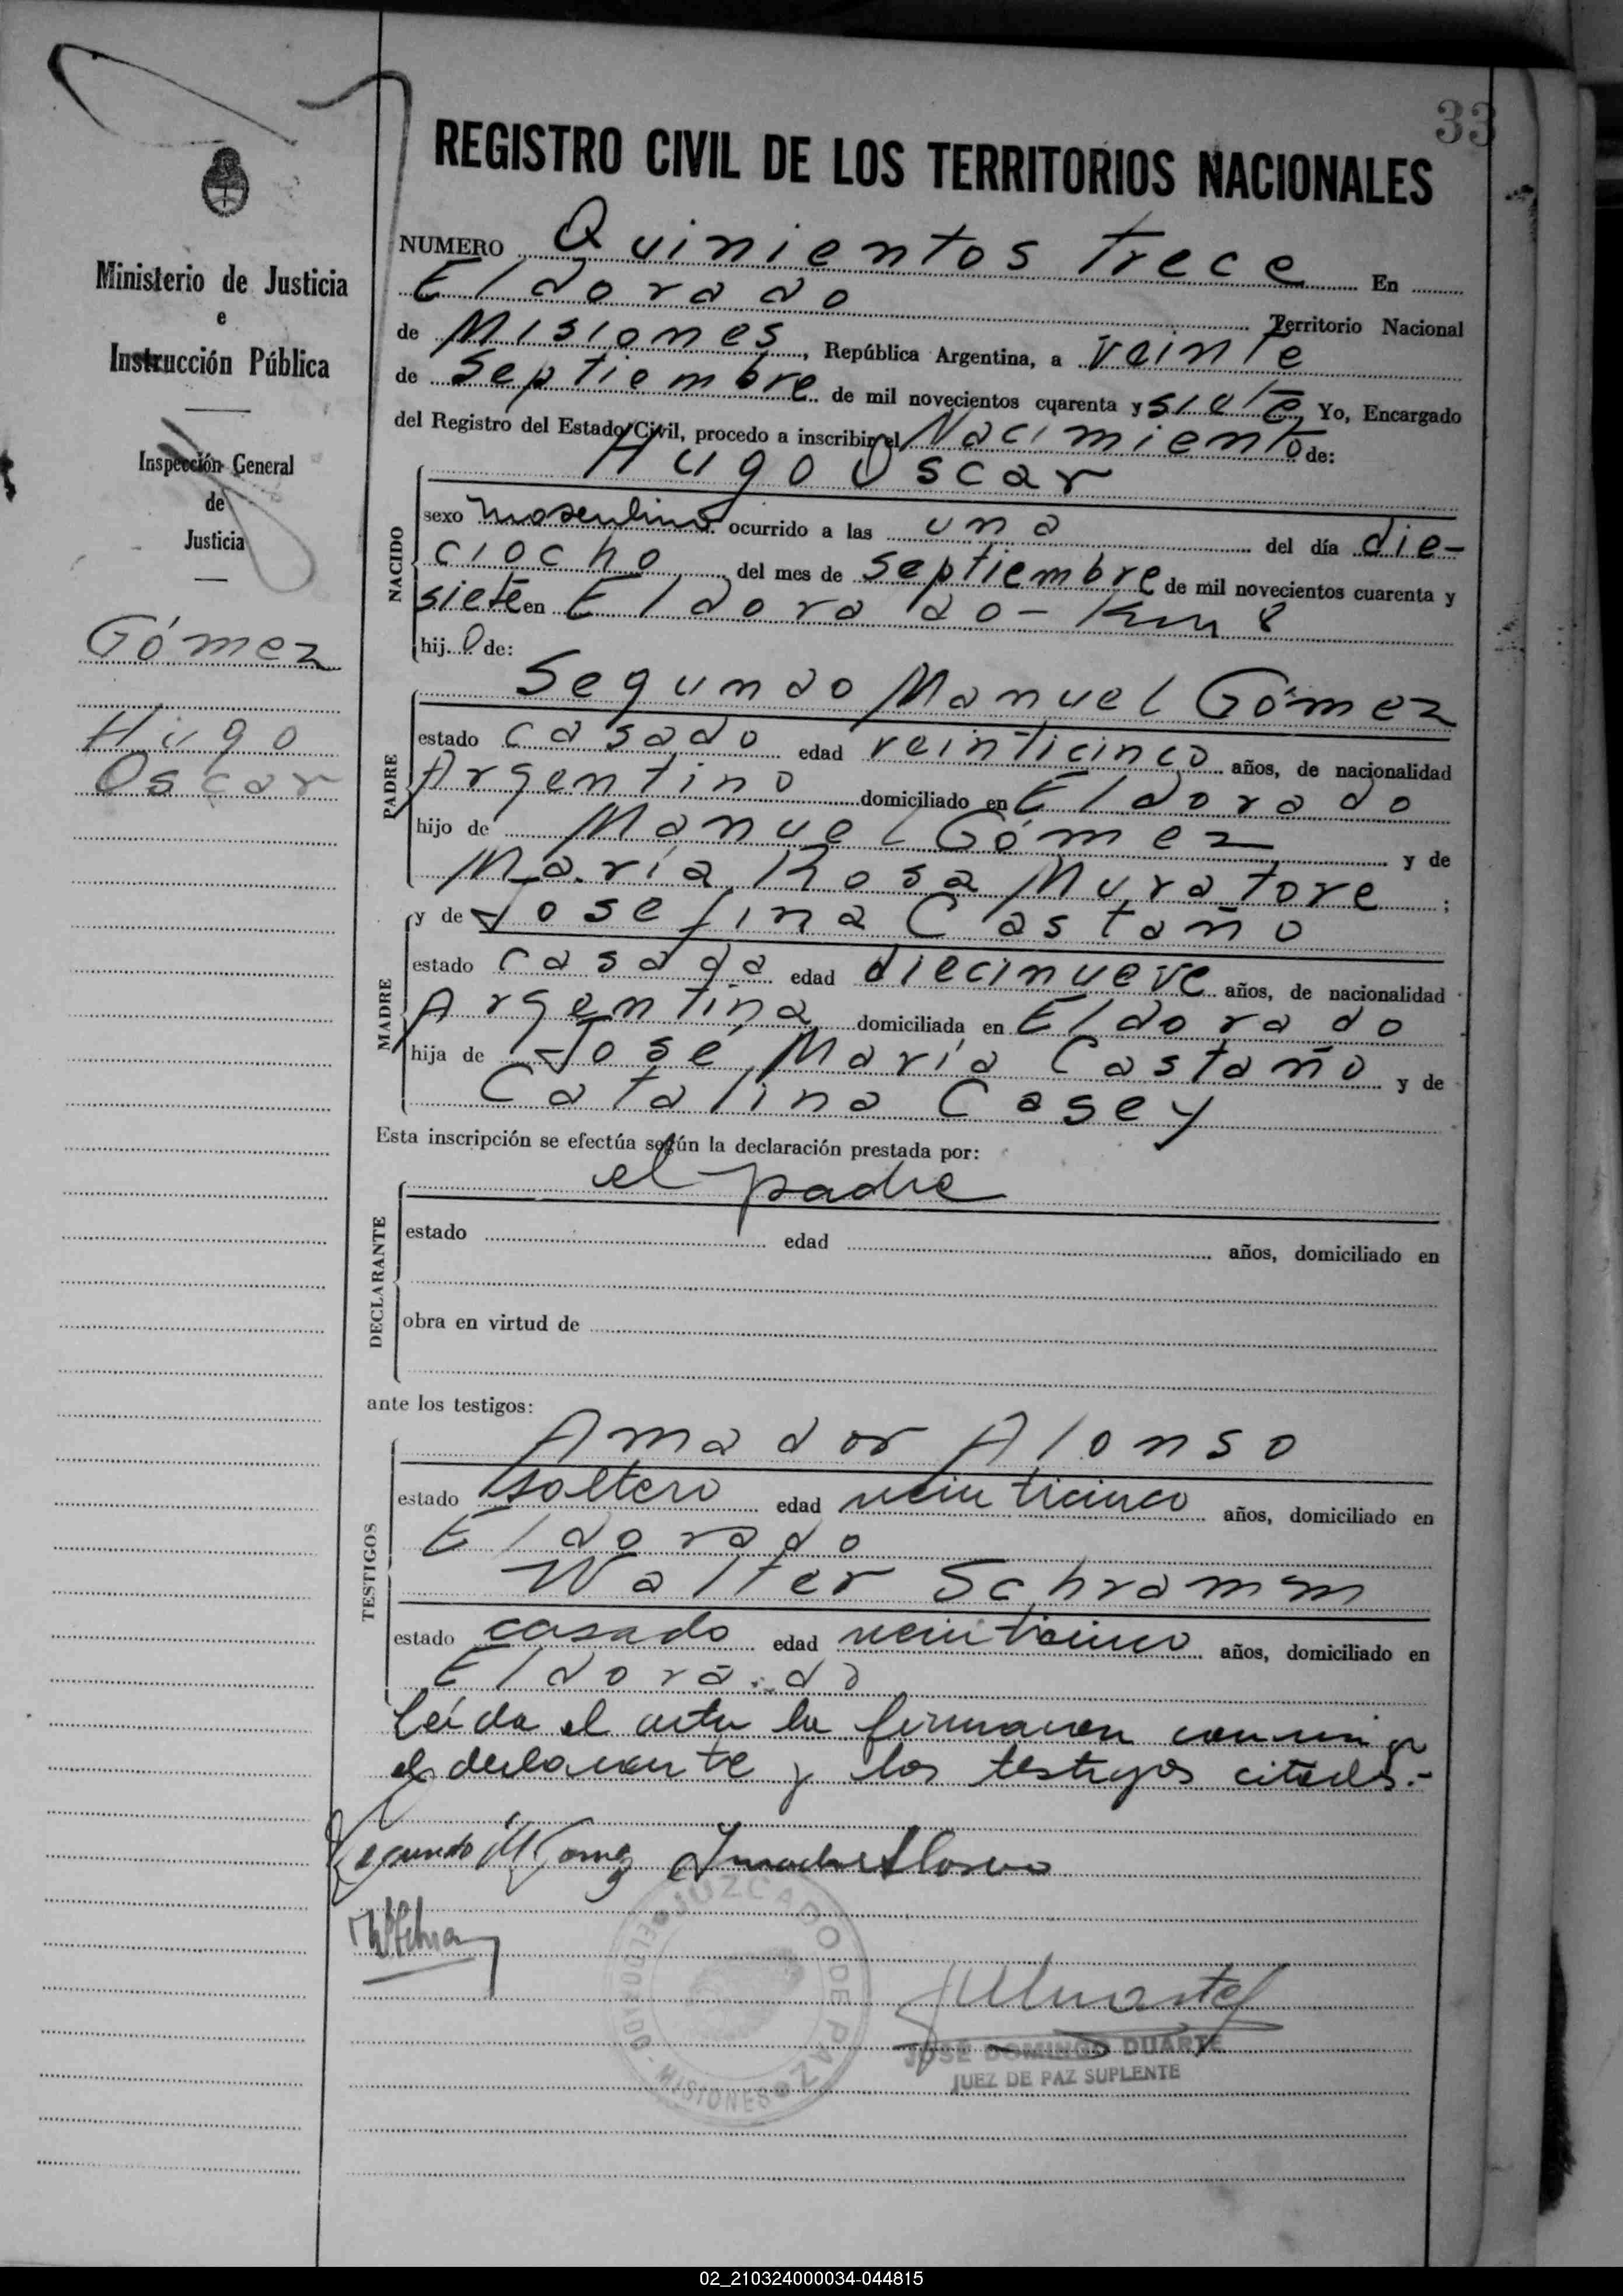 33
REGISTRO CIVIL DE LOS TERRITORIOS NACIONALES
Ministerio de Justicia
e
Instrucción Pública
Inspección General
de
Justicia
Gómez
Hugo
Oscar
NUMERO Quinientos trece En
Eldorado Territorio Nacional
de Misiones, República Argentina, a veinte
de Septiembre de mil novecientos cuarenta y siete, Yo, Encargado
del Registro del Estado Civil, procedo a inscribir el Nacimiento de:
Hugo Oscar
NACIDO
sexo masculino ocurrido a las una del día die-
ciocho del mes de Septiembre de mil novecientos cuarenta y
siete en Eldorado - Km 8
hij.o de:
PADRE
Segundo Manuel Gómez
estado casado edad veinticinco años, de nacionalidad
Argentino domiciliado en Eldorado
hijo de Manuel Gómez y de
María Rosa Muratore ;
MADRE
y de Josefina Castaño
estado casada edad diecinueve años, de nacionalidad
Argentina domiciliada en Eldorado
hija de José María Castaño y de
Catalina Casey
Esta inscripción se efectúa según la declaración prestada por:
DECLARANTE
el padre
estado edad años, domiciliado en
obra en virtud de
ante los testigos:
TESTIGOS
Amador Alonso
estado soltero edad veinticinco años, domiciliado en
Eldorado
Walter Schramm
estado casado edad veinticinco años, domiciliado en
Eldorado
Leída el acta la firmaron conmigo
el declarante y los testigos citados.-
Segundo M Gomez Amador Alonso
JUZGADO DE PAZ
ELDORADO - MISIONES
JOSÉ DOMINGO DUARTE
JUEZ DE PAZ SUPLENTE
02_210324000034-044815